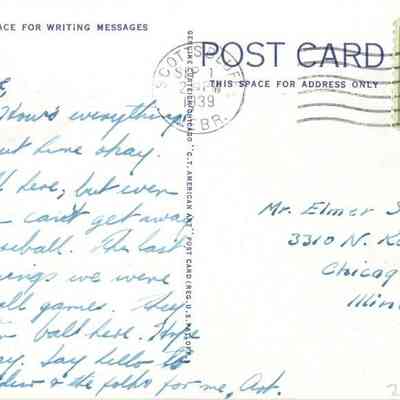 ACE FOR WRITING MESSAGES
POST CARD
THIS SPACE FOR ADDRESS ONLY
SCOTTSBLUFF
SEP 1
2 PM
1939
NEBR.
GENUINE CURTEICH-CHICAGO "C.T. AMERICAN ART" POST CARD (REG. U.S. PAT. OFF.)
How's everything
out here okay.
here, but even
can't get away
seball. The last
we were
ll games. They
ball here. Hope
ay. Say hello to
& the folks for me, Art.
Mr. Elmer S
3310 N. K
Chicag
Illin